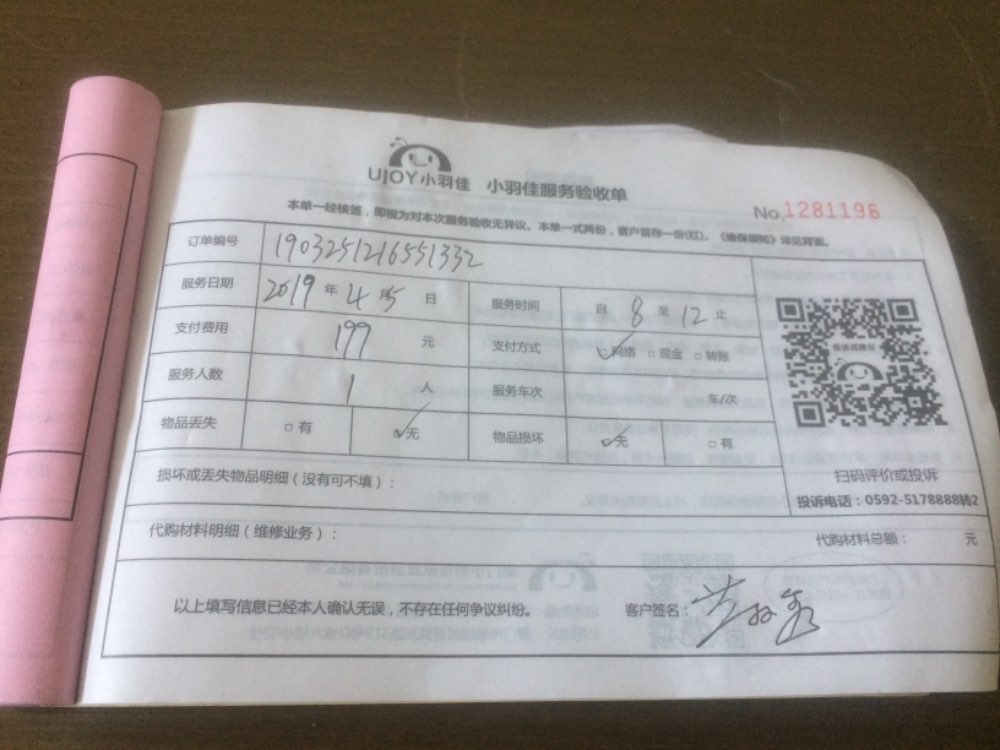 UJOY小羽佳 小羽佳服务验收单
No.1281196
本单一经核签，即视为对本次服务验收无异议。本单一式两份，客户留存一份(红)。《维保须知》详见背面。
订单编号 1903251216551332
服务日期 2019 年 4 月 5 日 服务时间 自 8 至 12 止
支付费用 199 元 支付方式 网络 现金 转账
服务人数 1 人 服务车次 车/次
物品丢失 有 无 物品损坏 无 有
投诉或建议
扫码评价或投诉
投诉电话：0592-5178888转2
损坏或丢失物品明细（没有可不填）：
代购材料明细（维修业务）： 代购材料总额： 元
以上填写信息已经本人确认无误，不存在任何争议纠纷。 客户签名：